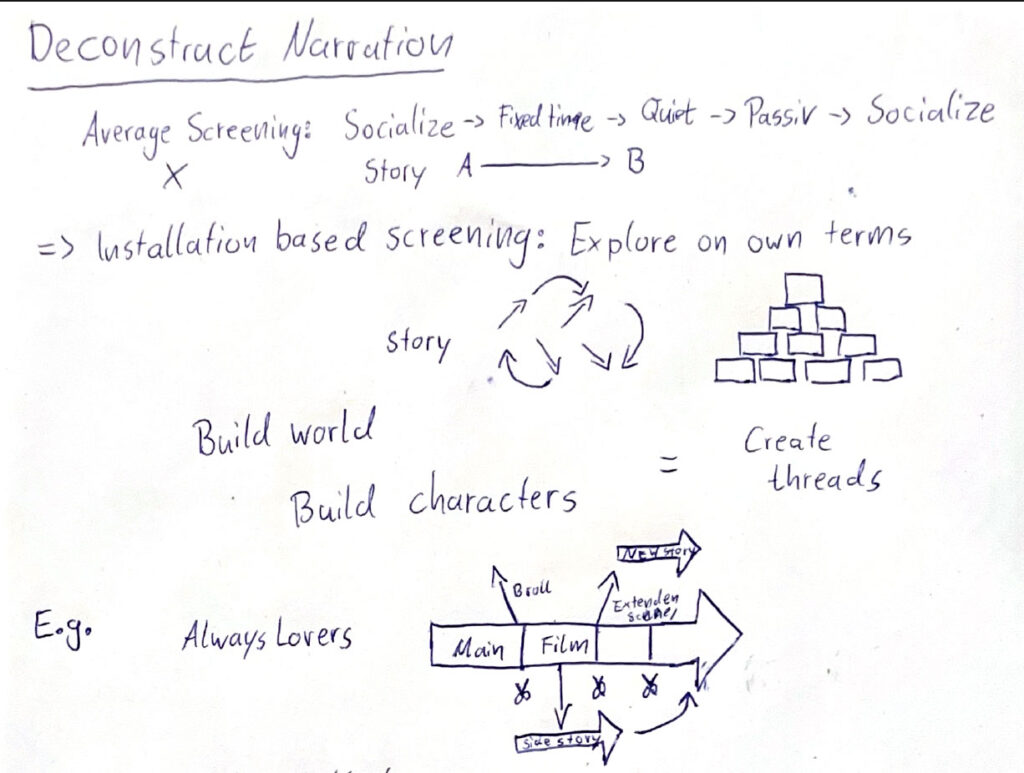 Deconstruct Narration
Average Screening: Socialize -> Fixed time -> Quiet -> Passiv -> Socialize
X Story A -> B
=> Installation based screening: Explore on own terms
Story
Build world
= Create
threads
Build characters
NEW Story
Broll
Extenden
scenes
E.g. Always Lovers
Main Film
side story